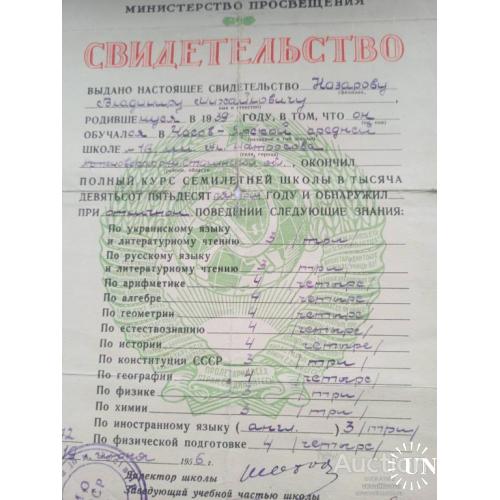 МИНИСТЕРСТВО ПРОСВЕЩЕНИЯ
СВИДЕТЕЛЬСТВО
ВЫДАНО НАСТОЯЩЕЕ СВИДЕТЕЛЬСТВО Назарову
Владимиру Михайловичу,
РОДИВШЕМУСЯ В 1939 ГОДУ, В ТОМ, ЧТО он
ОБУЧАЛСЯ В Часов-Ярской средней
ШКОЛЕ №16 им. Матросова
Сталинской обл., ОКОНЧИЛ
ПОЛНЫЙ КУРС СЕМИЛЕТНЕЙ ШКОЛЫ В ТЫСЯЧА
ДЕВЯТЬСОТ ПЯТЬДЕСЯТ шестом ГОДУ И ОБНАРУЖИЛ
ПРИ отличном ПОВЕДЕНИИ СЛЕДУЮЩИЕ ЗНАНИЯ:
По украинскому языку
и литературному чтению 3 /три/
По русскому языку
и литературному чтению 3 /три/
По арифметике 4 /четыре/
По алгебре 4 /четыре/
По геометрии 4 /четыре/
По естествознанию 4 /четыре/
По истории 4 /четыре/
По конституции СССР 3 /три/
По географии 4 /четыре/
По физике 3 /три/
По химии 3 /три/
По иностранному языку (англ.) 3 /три/
По физической подготовке 4 /четыре/
июня 1956 г.
Директор школы
Заведующий учебной частью школы
UN